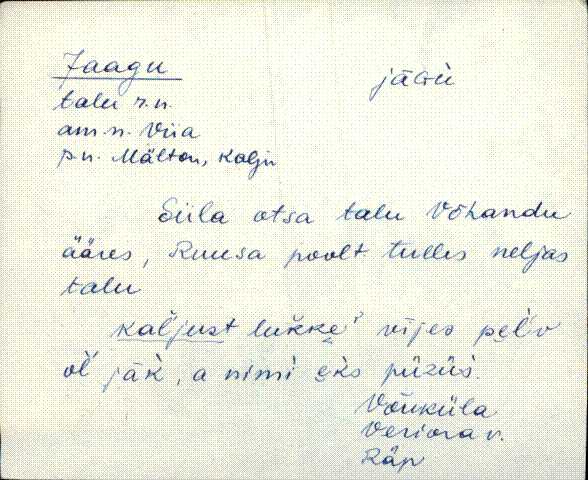 Jaagu jäGü
talu r.n.
am.n. Viia
p.n. Mälton, Kalju
Süla otsa talu Võhandu
ääres, Ruusa poolt tulles neljas
talu
kaljust lukke' vījes
õl' jäk, a nimi eks püzüs.
Võuküla
Veriora v.
Räp